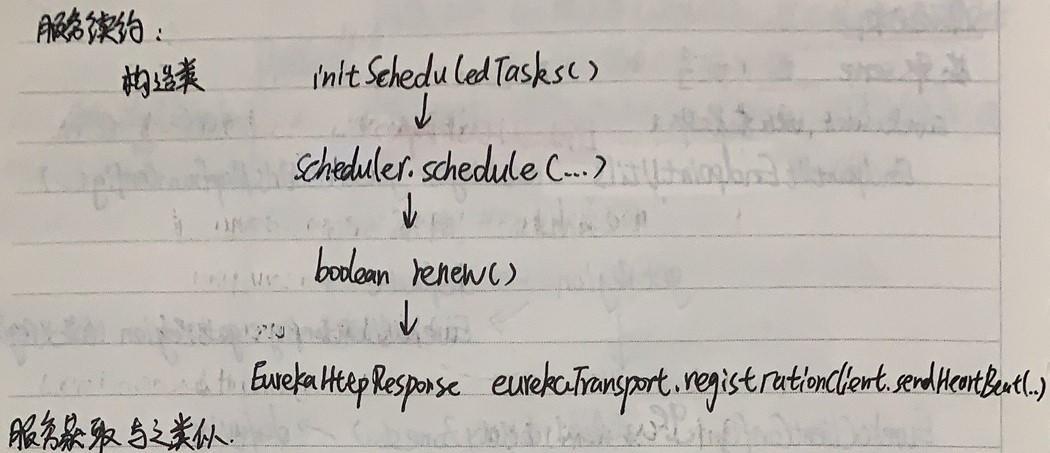 服务续约：
构造类 initScheduledTasks()
↓
scheduler.schedule(...)
↓
boolean renew()
↓
EurekaHttpResponse eurekaTransport.registrationClient.sendHeartBeat(..)
服务获取与之类似.